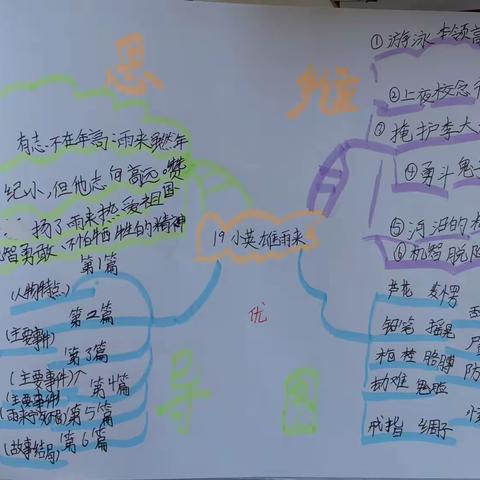 思
维
导
图
19 小英雄雨来
优
有志不在年高:雨来虽然年
纪小,但他志向高远。赞
扬了雨来热爱祖国
智勇敢、不怕牺牲的精神
第1篇
(人物特点)
第2篇
(主要事件)
第3篇
(主要事件)
第4篇
(主要事件)
第5篇
第6篇
(故事结局)
①游泳本领高
②上夜校念
③掩护李大
④勇斗鬼
⑤河沿的
⑥机智脱险
芦花
铅笔 摇晃
胳膊 防
劫难 鬼脸
戒指 绸子